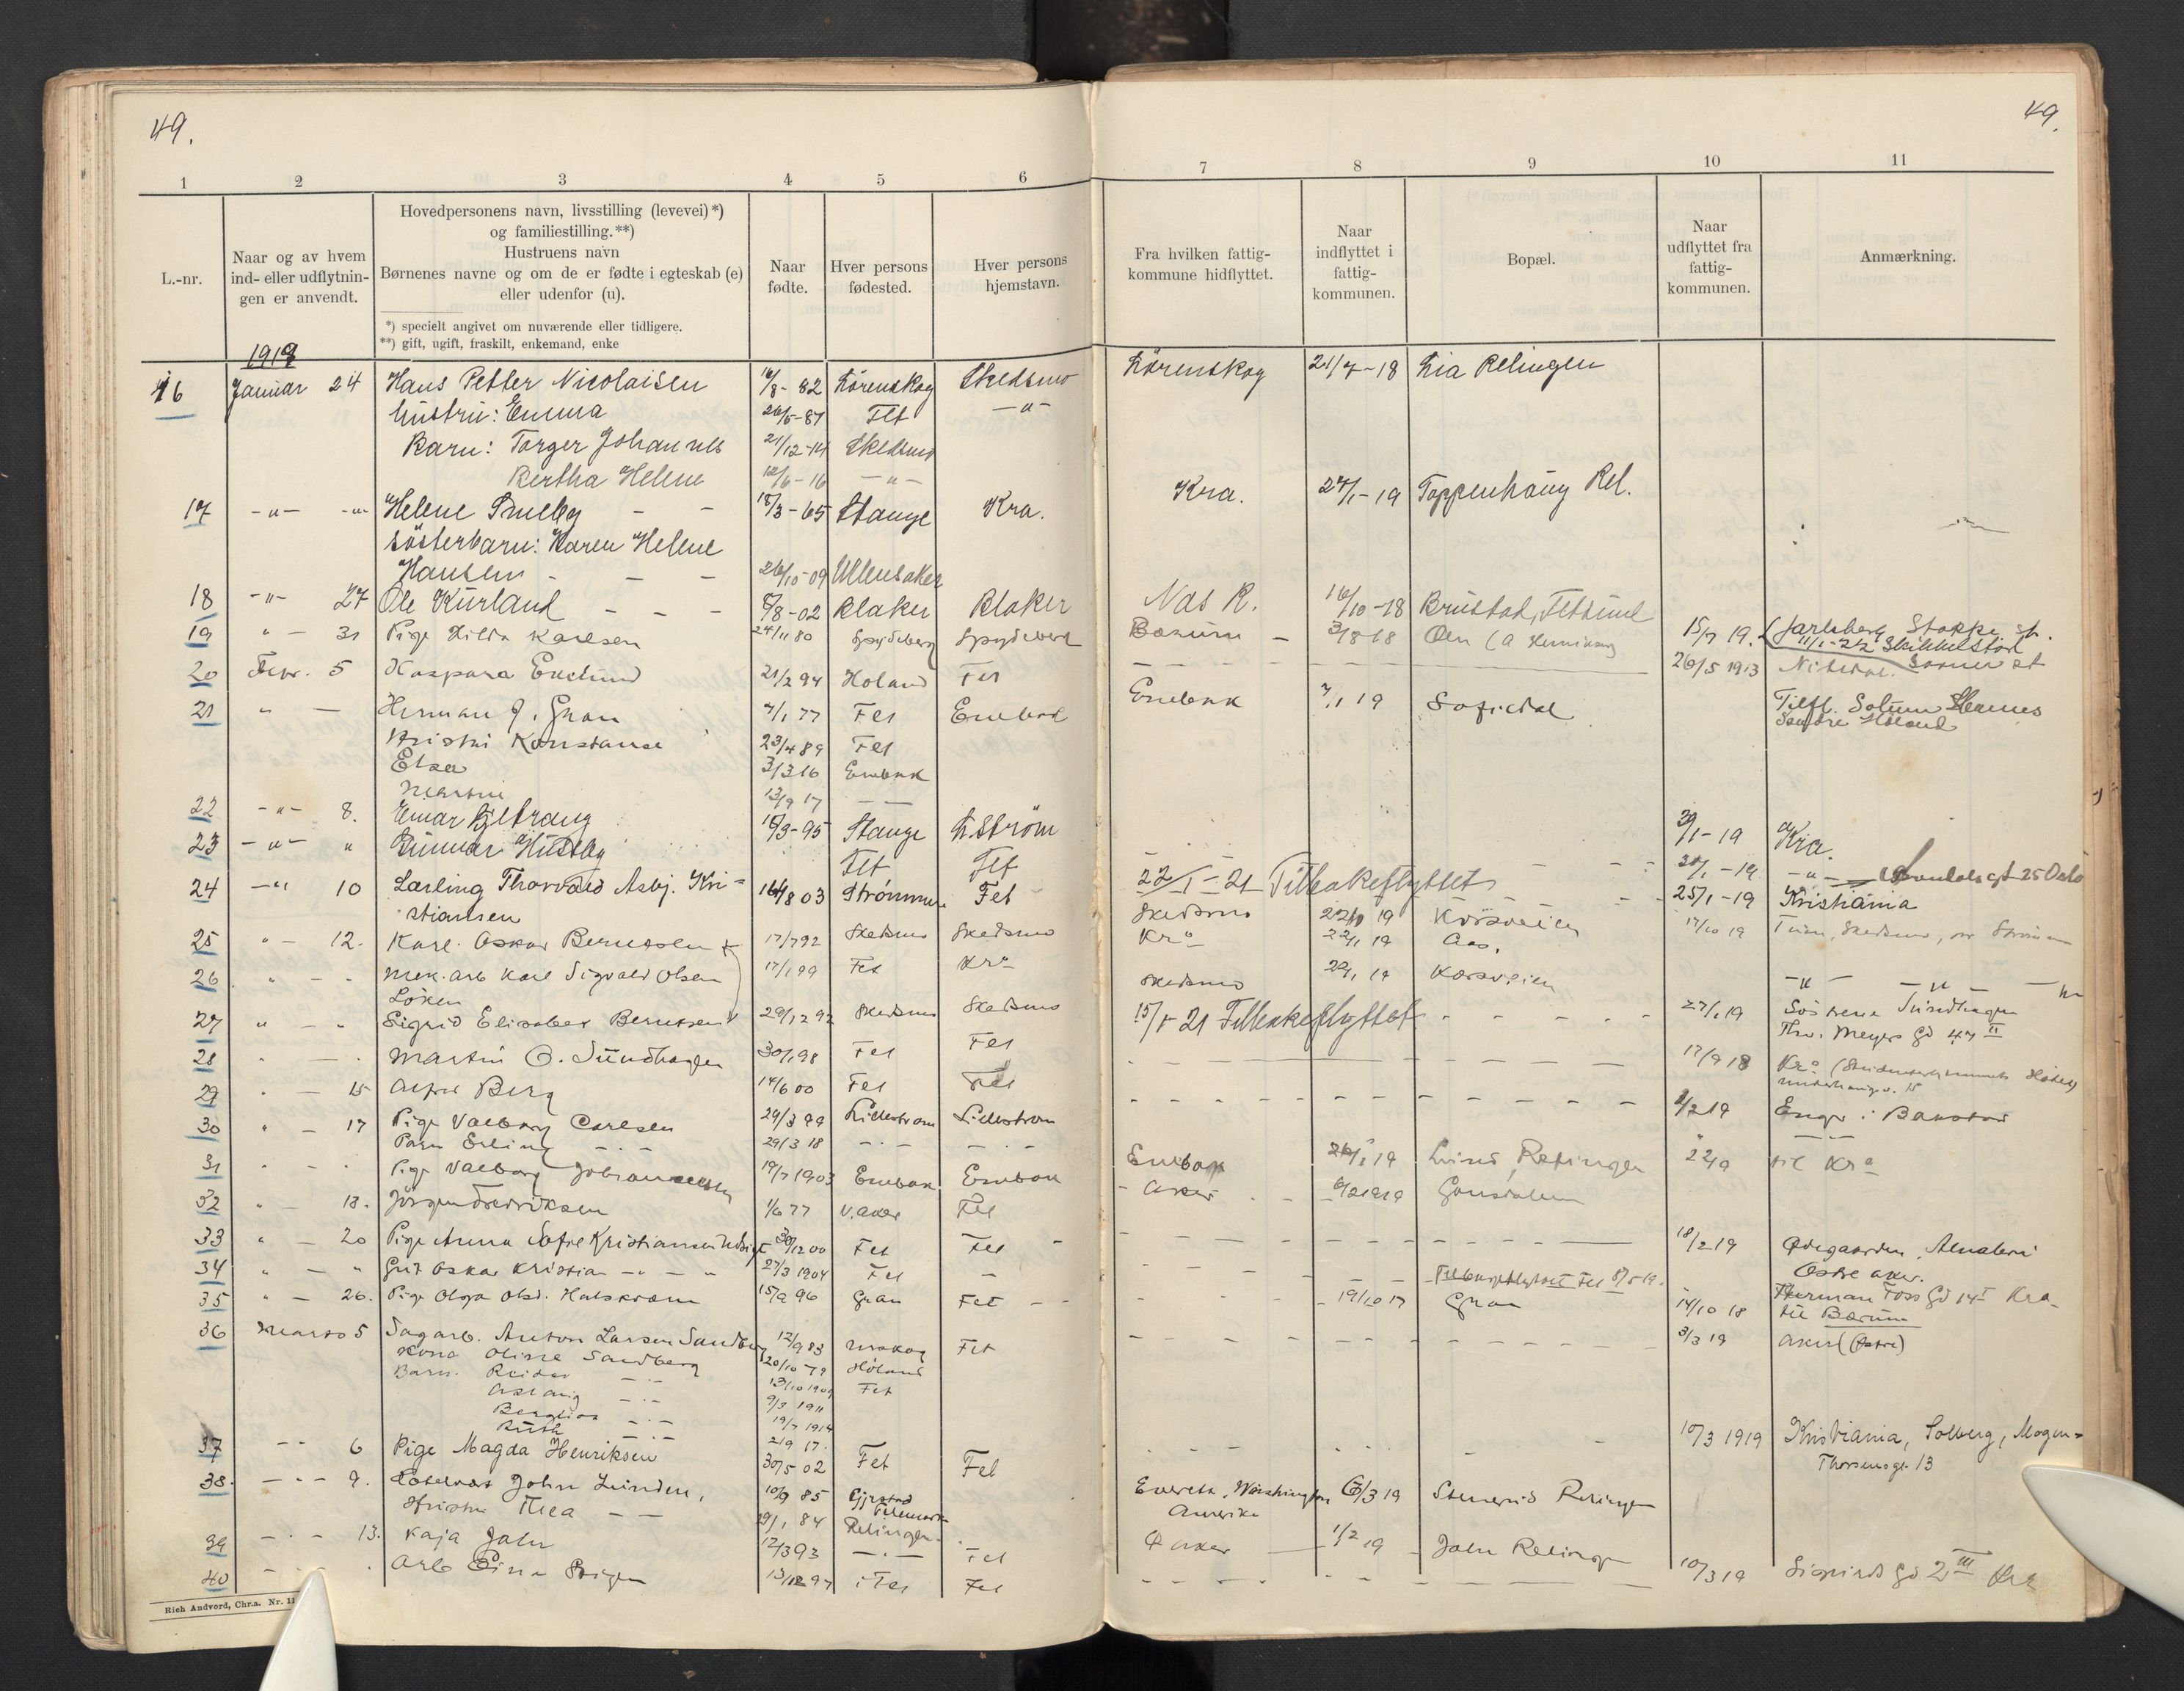 49.
49.
1 2 3 4 5 6 7 8 9 10 11
L.-nr.
Naar og av hvem
ind- eller udflytnin-
gen er anvendt.
Hovedpersonens navn, livsstilling (levevei) *)
og familiestilling. **)
Hustruens navn
Børnenes navne og om de er fødte i egteskab (e)
eller udenfor (u).
*) specielt angivet om nuværende eller tidligere.
**) gift, ugift, fraskilt, enkemand, enke
Naar
fødte.
Hver persons
fødested.
Hver persons
hjemstavn.
Fra hvilken fattig-
kommune hidflyttet.
Naar
indflyttet i
fattig-
kommunen.
Bopæl.
Naar
udflyttet fra
fattig-
kommunen.
Anmærkning.
1919
16 Januar 24 Hans Petter Nicolaisen 16/8-82 Lørenskog Skedsmo Lørenskog 21/7-18 Lia Relingen
hustru: Emma 26/5-87 Fet -"-
Barn: Torger Johannes 21/12-14 Skedsmo
Bertha Helene 12/6-16 -"-
17 -"- -"- Helene Smeby - - 18/3-65 Stange Kra. Kra. 27/1-19 Toppenhaug Rel.
søsterbarn: Karen Helene
Hansen - - - 26/10-09 Ullensaker
18 -"- 27 Ole Kurland - - - 8/8-02 Blaker Blaker Nas R. 16/10-18 Brustad, Fetsund
19 " - 31 Pige Hilda Karlsen 24/11 80 Spydeberg Spydeberg Bærum - 3/8-18 Øen 15/7 19. Jarlsberg Stokke st.
11/1-22
20 Febr. 5 Kaspara Enslund 21/2 94 Høland Fet 26/5 1913 Nitedal.
21 " - Herman J. Gran 7/1 77 Fet Enebak Enebak 7/1 19 Tilfl.
Høland
Hustru Konstanse 23/4 89 Fet
Elsa 3/3 16 Enebak
Martin 13/9 17 - -
22 -"- 8. Einar Bjeltrang 18/3-95 Stange L.Strøm 31/1-19 Kra.
23 -"- " Gunnar Huseby Fet Fet 22/1-21 Tilbakeflyttet 30/1-19 -"- 25 Oslo
24 -"- 10 Lærling Thorvald Asbj. Kri= 14/8 03 Strømmen Fet 25/1-19 Kristiania
stiansen
25 " - 12. Karl. Oskar Berntsen 17/7 92 Skedsmo Skedsmo Skedsmo Korsveien 17/10 19
26 " - - Mek. arb Karl Sigvald Olsen 17/1 99 Fet Kra Kra 22/1 19 Aas.
Løken
27 " - " Sigrid Elisabet Berntsen 29/12 92 Skedsmo Skedsmo Skedsmo 22/1 19 Korsveien -"- -"-
28 " - . Martin O. Sundhagen 30/1 98 Fet Fet 15/1-21 Tilbakeflyttet 27/1 19 Søstrene Sundhagen
Thv. Meyers Gd 47 II
29 " - 15 Alfred Berg 14/6 00 Fet Fet 17/9 18 Kra
30 " - 17 Pige Valborg Carlsen 29/3 99 Lillestrøm Lillestrøm 8/2 19 Enger i Bakstad
Barn Erling - . - 29/3 18 - . - - . -
31 " - " Pige Valborg Johannessen 19/7 1903 Enebak Enebak Enebak Lund, Relingen til Kra
32 " - 18. Jørgen Fredriksen 1/6 77 V. Aker Fet Aker
33 " - 20 Pige Anna Sofie Kristiansen 30/12 00 Fet Fet 18/2 19 Ødegaarden, Alnabru
Østre aker.
34 " - " Gut Oskar Kristian -"- 27/3 1904 Fet - Tilbageflyttet Fet 8/5 19.
35 " - 26. Pige Olga Olsd. 15/9 96 Gran Fet 19/10 17 Gran 14/10 18 Herman Foss Gd 14 I Kra
til Bærum
36 Marts 5 Sagarb. Anton Larsen Sandberg 12/9 83 Urskog Fet 3/3 19 Aker (Østre)
Kona Oline Sandberg 20/10-79 Høland
Barn. Reidar - " - 13/10 1909 Fet
Aslaug - " - 9/3 1911
Bergliot - " - 19/7 1914
Ruth - " - 2/9 17.
37 - - 6 Pige Magda Henriksen 30/5 02 Fet Fet 10/3 1919 Kristiania, Solberg, Mogen=
Thorsensgt. 13
38. - " - 9. John Linden, 10/9 85 Gjerstad Everett, Washington 6/3 19 Stenerud Relingen
Telemark Amerika
Hustru Thea - - 29/1 84 Relingen
39 - . - 13. Kaja Jahr 12/3 93 - . - Fet Ø aker 1/2 19 Jahr Relingen
40 - - . Arb 13/12 97 i Fet Fet 10/3 19 Sigurds Gd 2 III Kra
Rich Andvord, Chr.a. Nr. 11